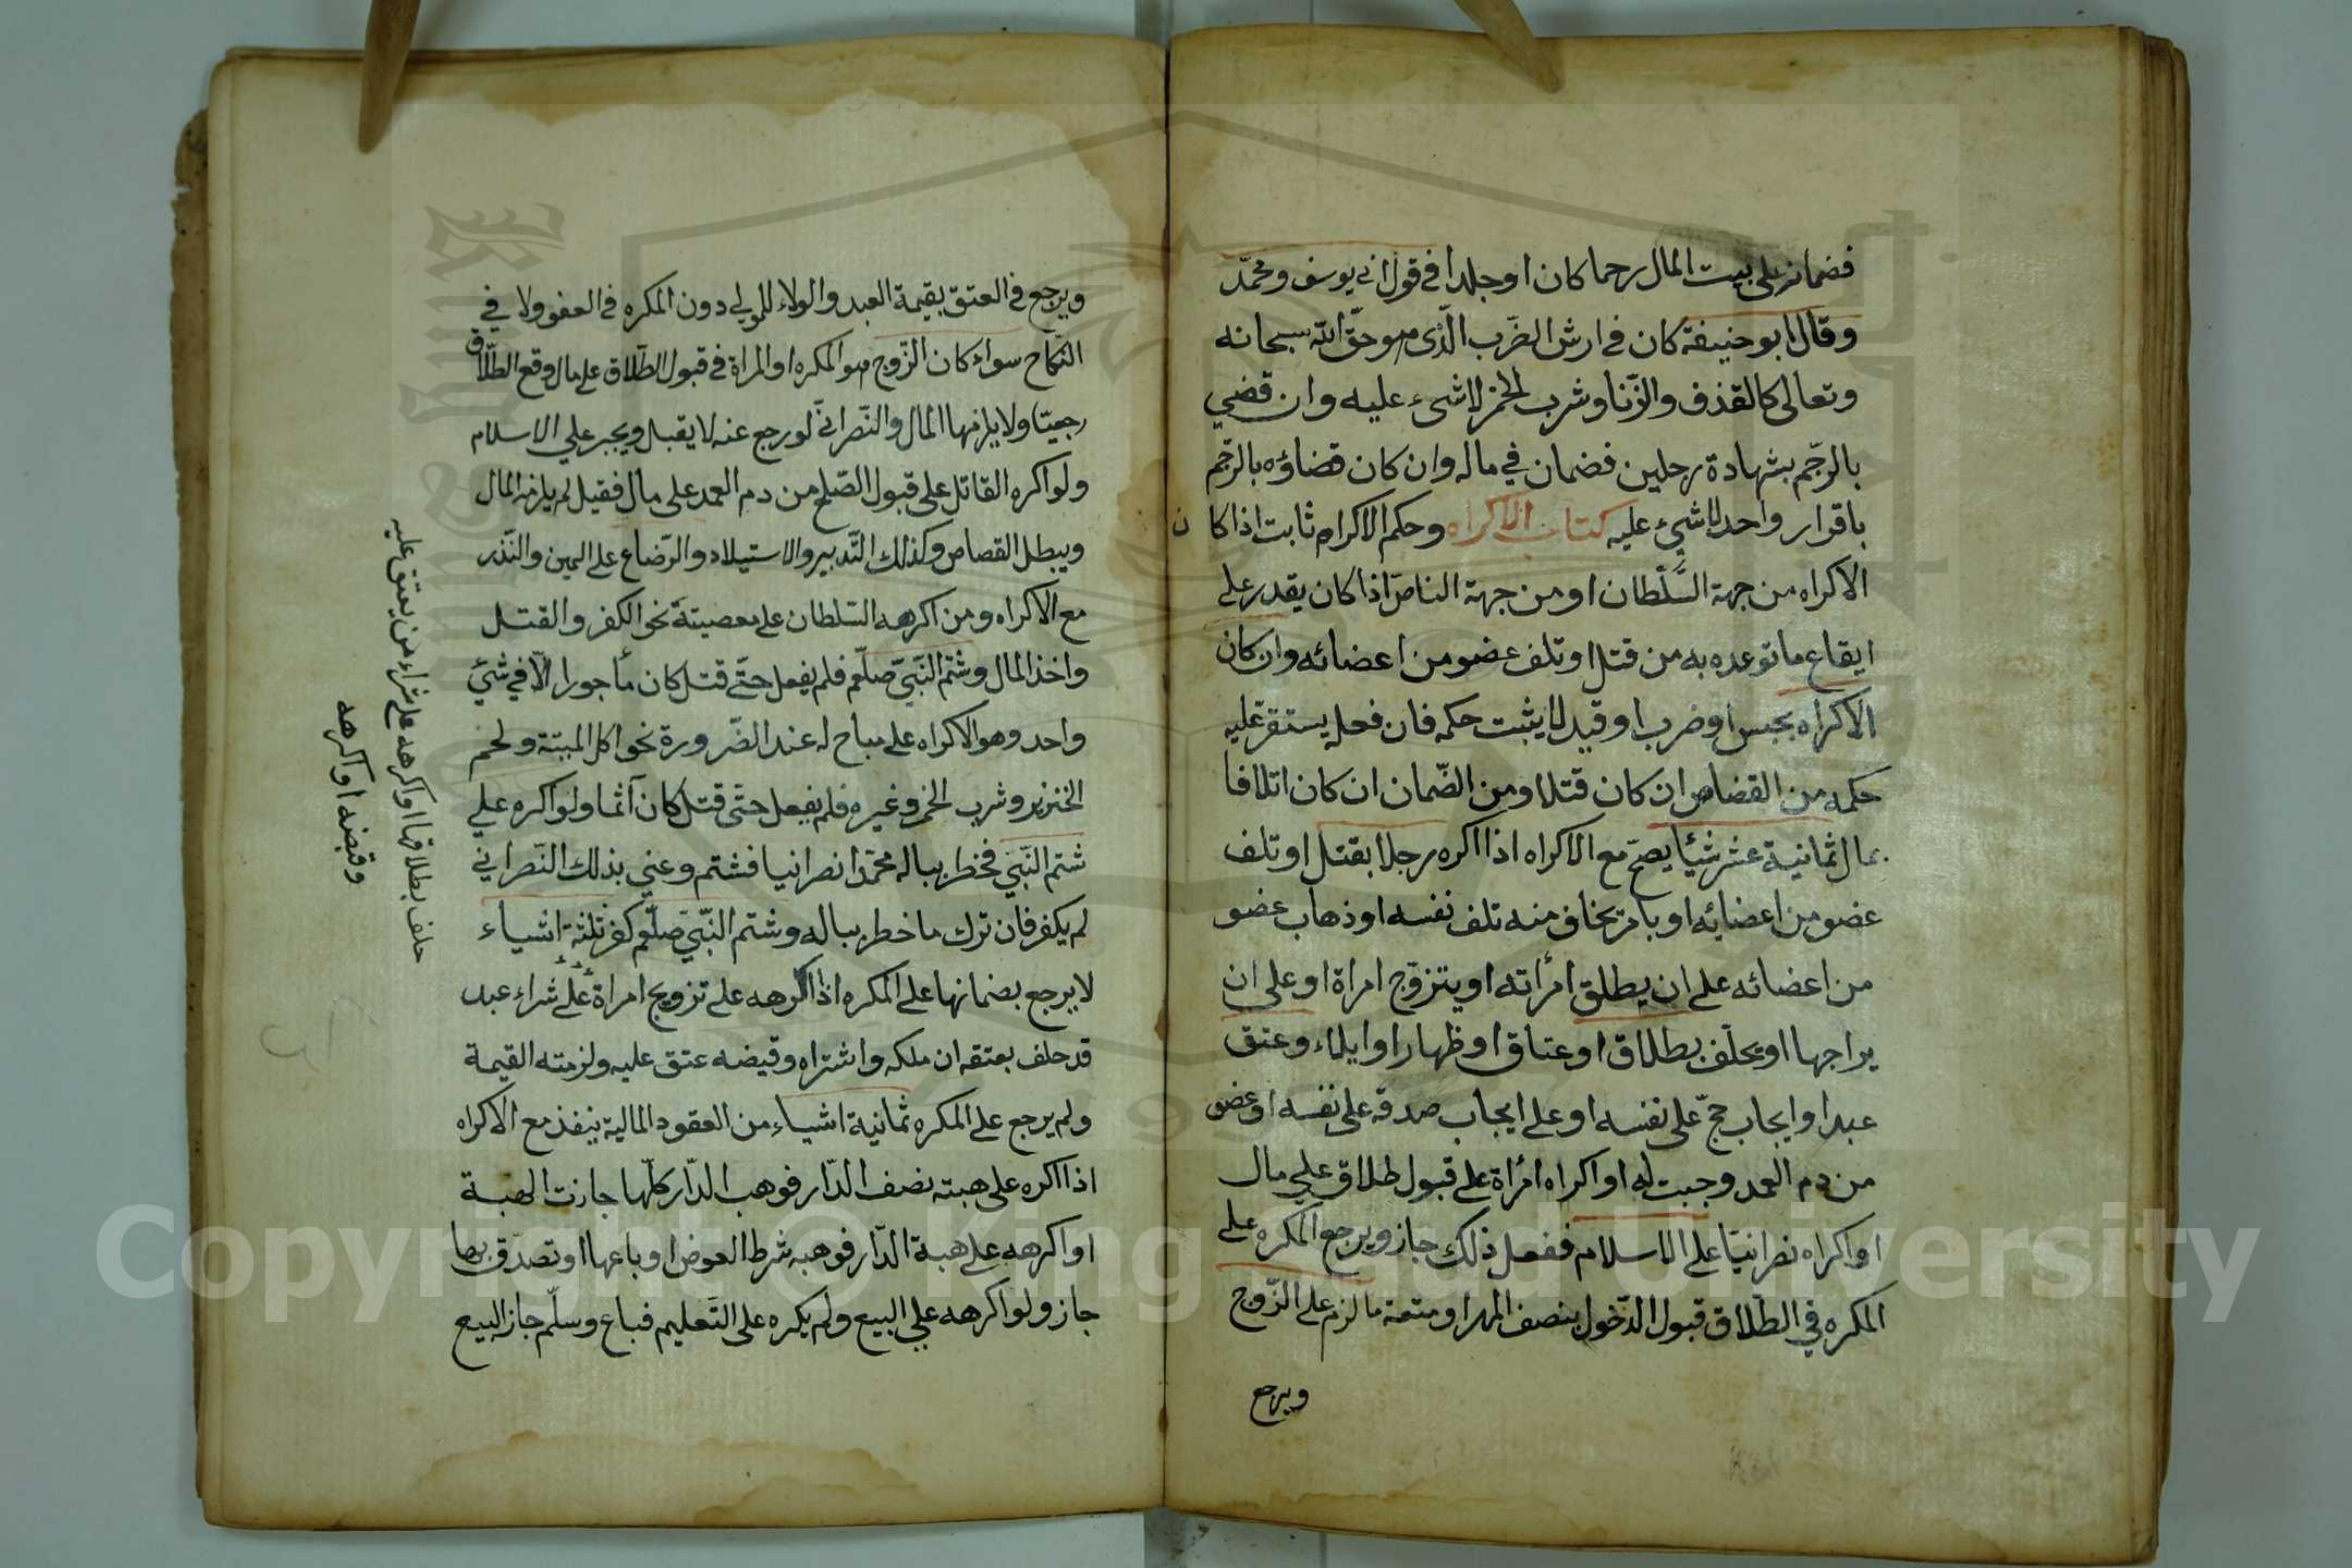 فضمانه على بيت المال رجما كان او جلدا في قول ابي يوسف ومحمّد
وقال ابو حنيفة كان في ارش الضّرب الّذي هو حقّ الله سبحانه
وتعالى كالقذف والزّنا وشرب الخمر لا شيء عليه وان قضي
بالرّجم بشهادة رجلين فضمان في ماله وان كان قضاؤه بالرّجم
باقرار واحد لا شيء عليه كتاب الاكراه وحكم الاكراه ثابت اذا كان
الاكراه من جهة السّلّطان او من جهة الناص اذا كان يقدر على
ايقاع ما توعده به من قتل او تلف عضو من اعضائه وان كان
الاكراه بحبس او ضرب او قيد لا يثبت حكمه فان فعله يستقرّ عليه
حكمه من القضاص ان كان قتلا ومن الضّمان ان كان اتلافا
بمال ثمانية عشر شيئا يصحّ مع الاكراه اذا اكره رجلا بقتل او تلف
عضو من اعضايه او بامر يخاف منه تلف نفسه او ذهاب عضو
من اعضائه على ان يطلق امرأته او يتزوّج امراة او على ان
يراجها او يحلف بطلاق او عتاق او ظهار او ايلاء وعتق
عبد او ايجاب حجّ على نفسه او على ايجاب صدقة على نفسه او عفو
من دم العمد وجبت له او اكراه امرأة على قبول طلاق علي مال
او اكراه نصرانيّا على الاسلام ففعل ذلك جاز ويرجع المكره على
المكره في الطّلاق قبول الدّخول بنصف المهر او متعة ما لزم على الزّوج
ويرجع
ويرجع في العتق بقيمة العبد والولاء للمولي دون المكره في العفو ولا في
النّكاح سواء كان الزّوج هو المكره او المراة في قبول الطّلاق على مال وقع الطّلاق
رجعيّا ولا يلزمها المال والنّصرانيّ لو رجع عنه لا يقبل ويجبر علي الاسلام
ولو اكره القاتل على قبول الصّلح من دم العمد على مال فقبل لم يلزمه المال
ويبطل القصاص وكذلك التّدبير والاستيلاد والرّضاع على اليمين والنّذر
مع الاكراه ومن اكرهه السّلطان على معصيتة نحو الكفر والقتل
واخذ المال وشتم النّبيّ صلّعم فلم يفعل حتّى قتل كان مأجورا الّا في شيئ
واحد وهو الاكراه على مباح له عند الضّرورة نحو اكل الميتة ولحم
الخنزير وشرب الخمر وغيره فلم يفعل حتّى قتل كان آثما ولو اكره علي
شتم النّبيّ فخطر بباله محمّدا نصرانيا فشتم وعني بذلك النّصراني
لم يكفر فان ترك ما خطر بباله وشتم النّبيّ صلّعم كفر ثلثة اشياء
لا يرجع بضمانها على المكره اذا اكرهه على تزويج امراة على شراء عبد
قد حلف بعتقه ان ملكه واشتراه وقبضه عتق عليه ولزمته القيمة
ولم يرجع على المكره ثمانية اشياء من العقود المالية ينفذ مع الاكراه
اذا اكره على هبته نصف الدّار فوهب الدّار كلّها جازت الهبة
او اكرهه على هبة الدّار فوهبه شرط العوض او باعها او تصدّق بها
جاز ولو اكرهه علي البيع ولم يكره على التّعليم فباع وسلّم جاز البيع
حلف بطلاقها او اكرهه على شراء من يعتق عليه
وقبضه او اكرهه
Copyright © King Saud University